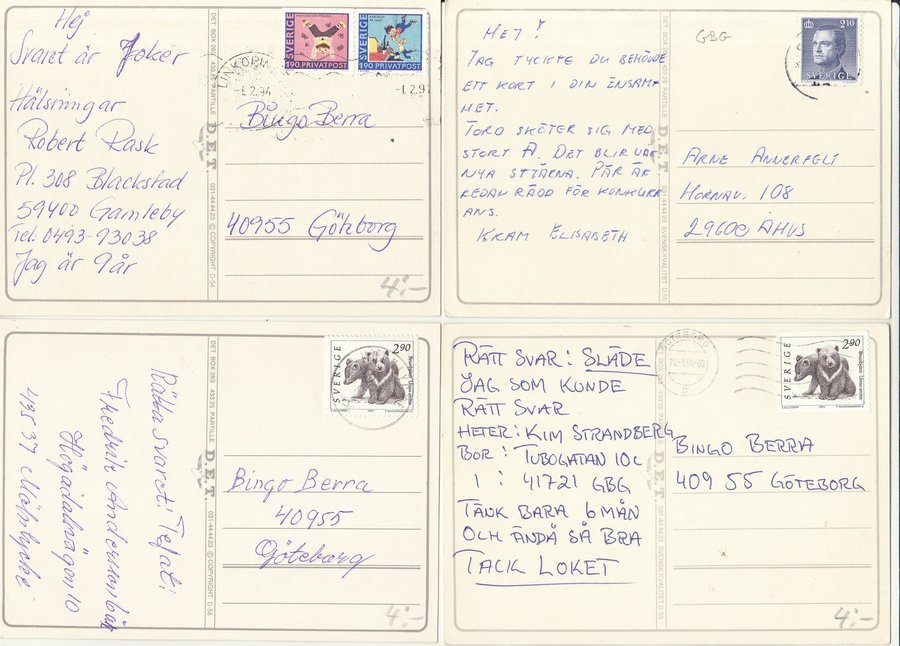 Hej
Svaret är Joker
Hälsningar
Robert Rask
Pl. 308 Blackstad
59400 Gamleby
Tel. 0493-93038
Jag är 9 år
DET BOX 263 433 25 PARTILLE D.E.T. 031-444423 © COPYRIGHT D-54
SVERIGE
190 PRIVATPOST
SVERIGE
190 PRIVATPOST
-1.2.94
Bingo Berra
40955 Göteborg
4:-
HEJ!
JAG TYCKTE DU BEHÖVDE
ETT KORT I DIN ENSAM-
HET.
TORD SKÖTER SIG MED
STORT A. DET BLIR VÅR
NYA STJÄRNA. PÄR ÄR
REDAN RÄDD FÖR KONKURR
ANS.
KRAM ELISABETH
D.E.T. 031-444423 SVENSK KVALITET
GBG
2.10
SVERIGE
ARNE ANNERFELT
HORNAV. 108
29600 ÅHUS
Rätta svaret: Tefat!
Fredrik Andersson
Högadalsvägen 10
435 37 Mölnlycke
DET BOX 263 433 25 PARTILLE D.E.T. 031-444423 © COPYRIGHT D-58
SVERIGE
2.90
Bingo Berra
40955
Göteborg
4:-
RÄTT SVAR: SLÄDE
JAG SOM KUNDE
RÄTT SVAR
HETER: KIM STRANDBERG
BOR: TUBOGATAN 10C
I : 41721 GBG
TÄNK BARA 6 MÅN
OCH ÄNDÅ SÅ BRA
TACK LOKET
D.E.T. 031-444423 SVENSK KVALITET
GÖTEBORG
SVERIGE
2.90
BINGO BERRA
409 55 GÖTEBORG
4:-